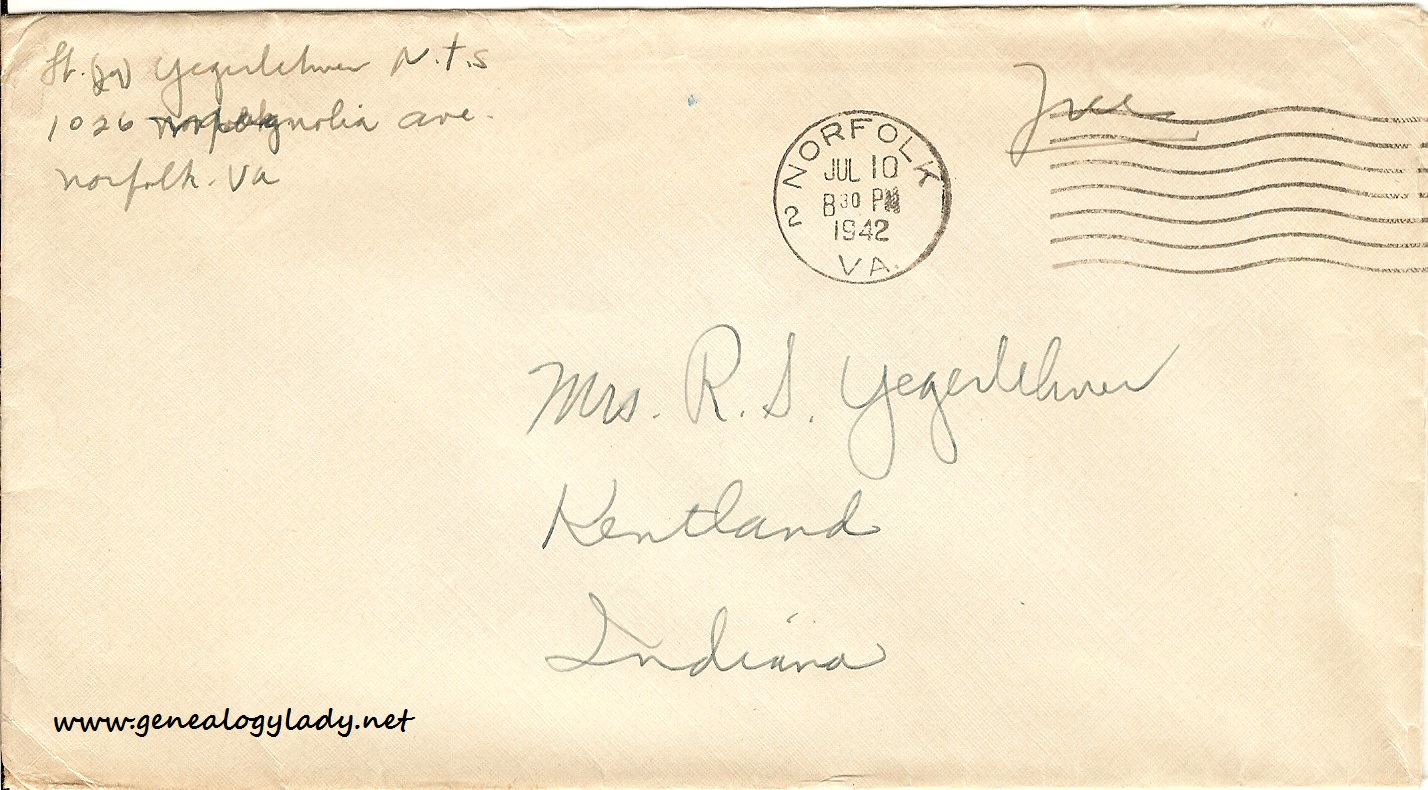 Lt. (jg) Yegerlehner N.T.S
1026 Magnolia ave.
Norfolk. Va
Free
2 NORFOLK VA.
JUL 10
8 30 PM
1942
Mrs. R. S. Yegerlehner
Kentland
Indiana
www.genealogylady.net